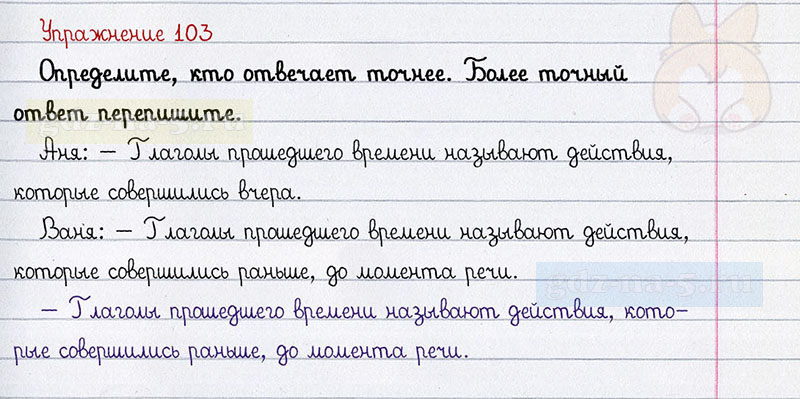 Упражнение 103
Определите, кто отвечает точнее. Более точный
ответ перепишите.
gdz-na-5.ru
Аня: – Глаголы прошедшего времени называют действия,
которые совершились вчера.
Ваня: – Глаголы прошедшего времени называют действия,
которые совершились раньше, до момента речи.
gdz-na-5.ru
– Глаголы прошедшего времени называют действия, кото-
рые совершились раньше, до момента речи.